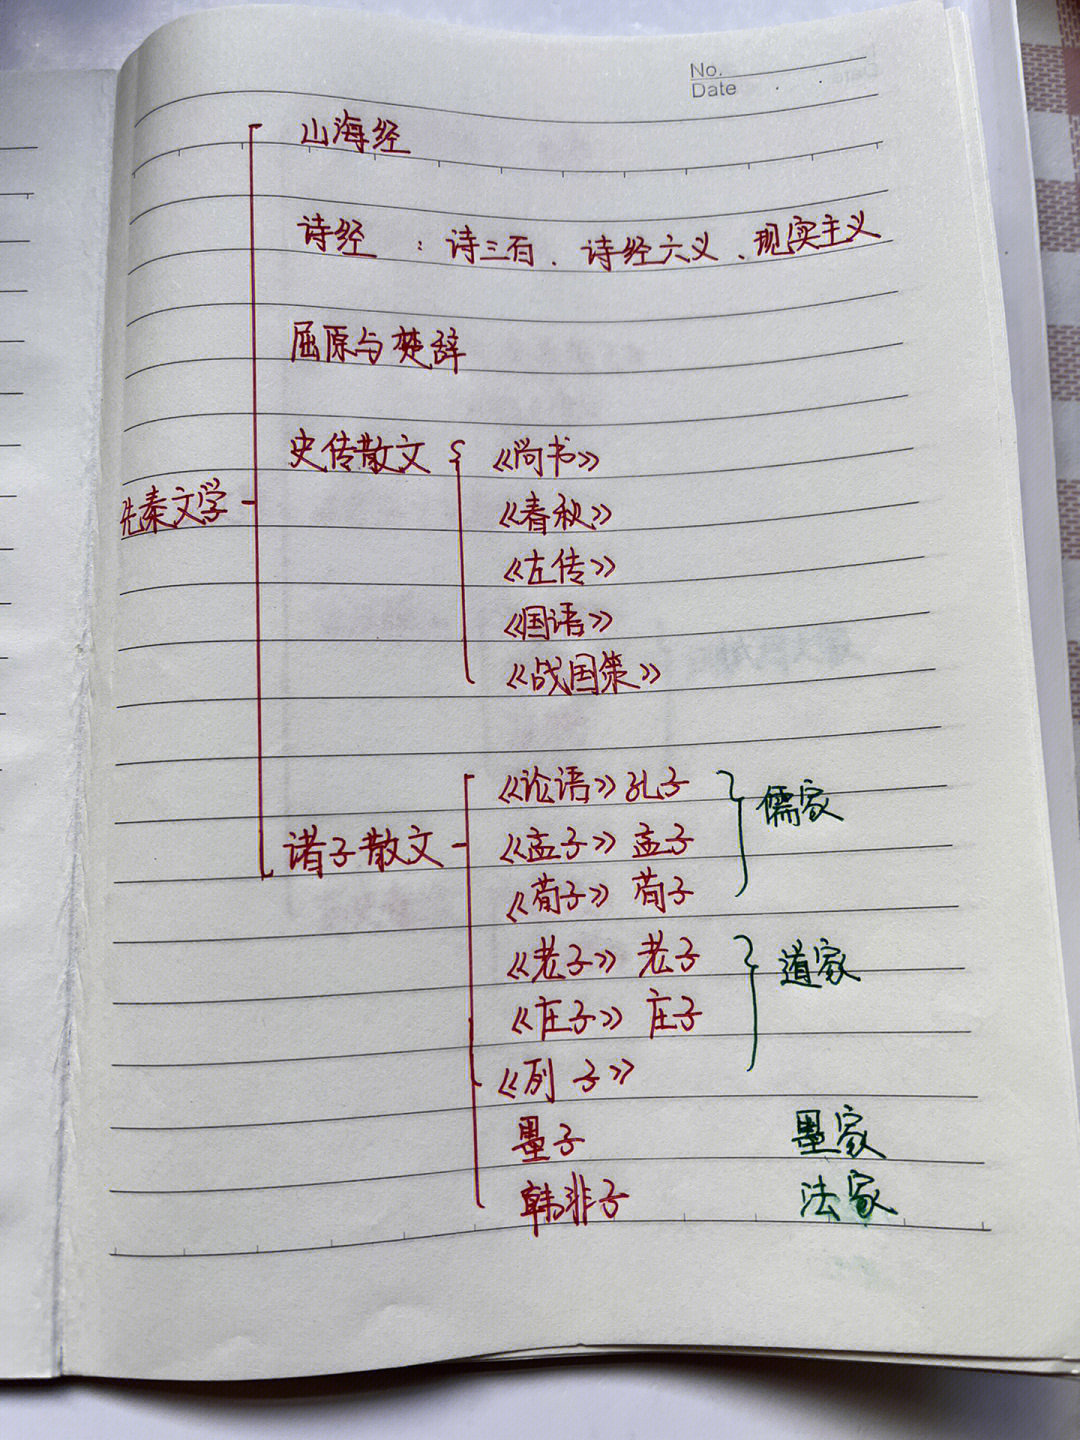 No.
Date
山海经
诗经 : 诗三百、诗经六义、现实主义
屈原与楚辞
史传散文 《尚书》
《春秋》
先秦文学
《左传》
《国语》
《战国策》
《论语》孔子
儒家
诸子散文 《孟子》 孟子
《荀子》 荀子
《老子》 老子
道家
《庄子》 庄子
《列子》
墨子 墨家
韩非子 法家